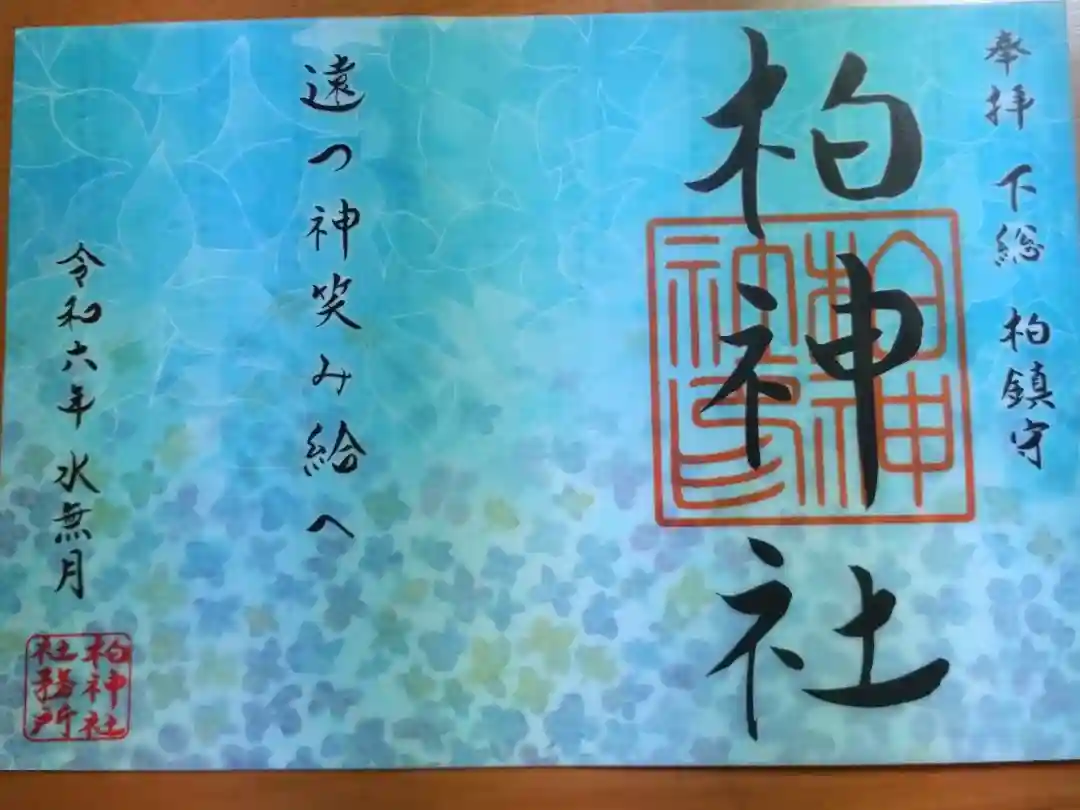 奉拝 下総 柏鎮守
柏神社
柏神社印
遠つ神笑み給へ
令和六年 水無月
柏神社
社務所